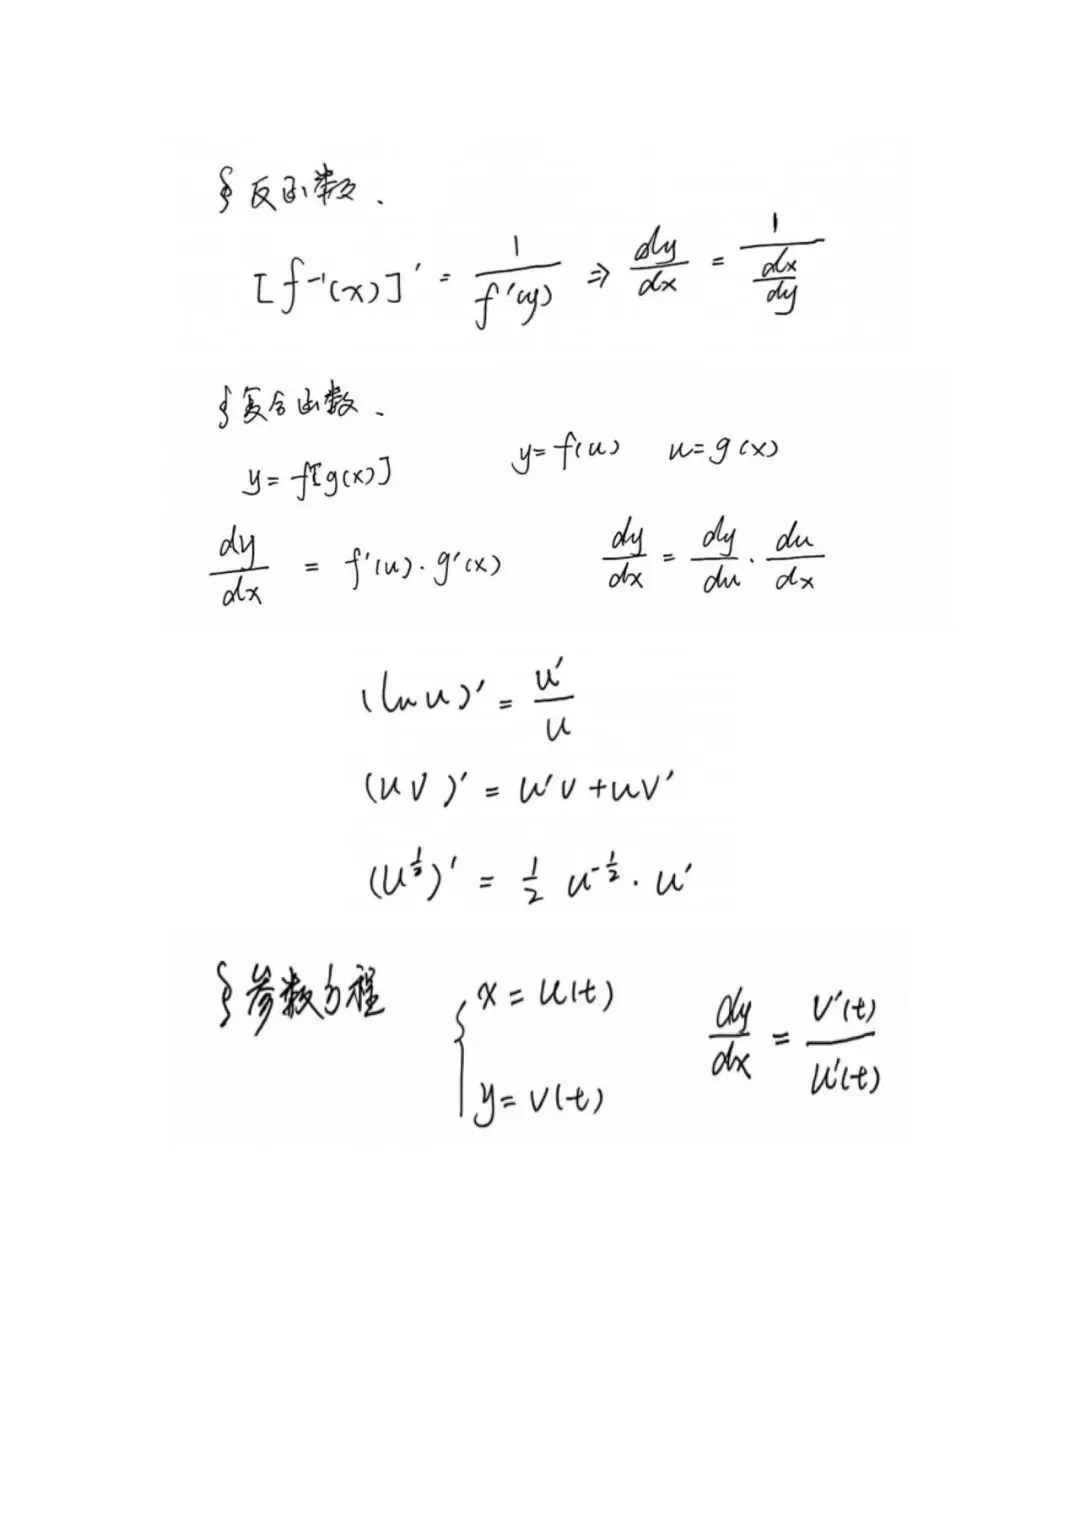 § 反函数、
[f⁻¹(x)]' = 1/f'(y) ⇒ dy/dx = 1/(dx/dy)
§ 复合函数、
y = f[g(x)] y = f(u) u = g(x)
dy/dx = f'(u)·g'(x) dy/dx = dy/du · du/dx
(ln u)' = u'/u
(uv)' = u'v + uv'
(u^{1/2})' = 1/2 u^{-1/2} · u'
§ 参数方程 { x = u(t) dy/dx = v'(t)/u'(t)
y = v(t)